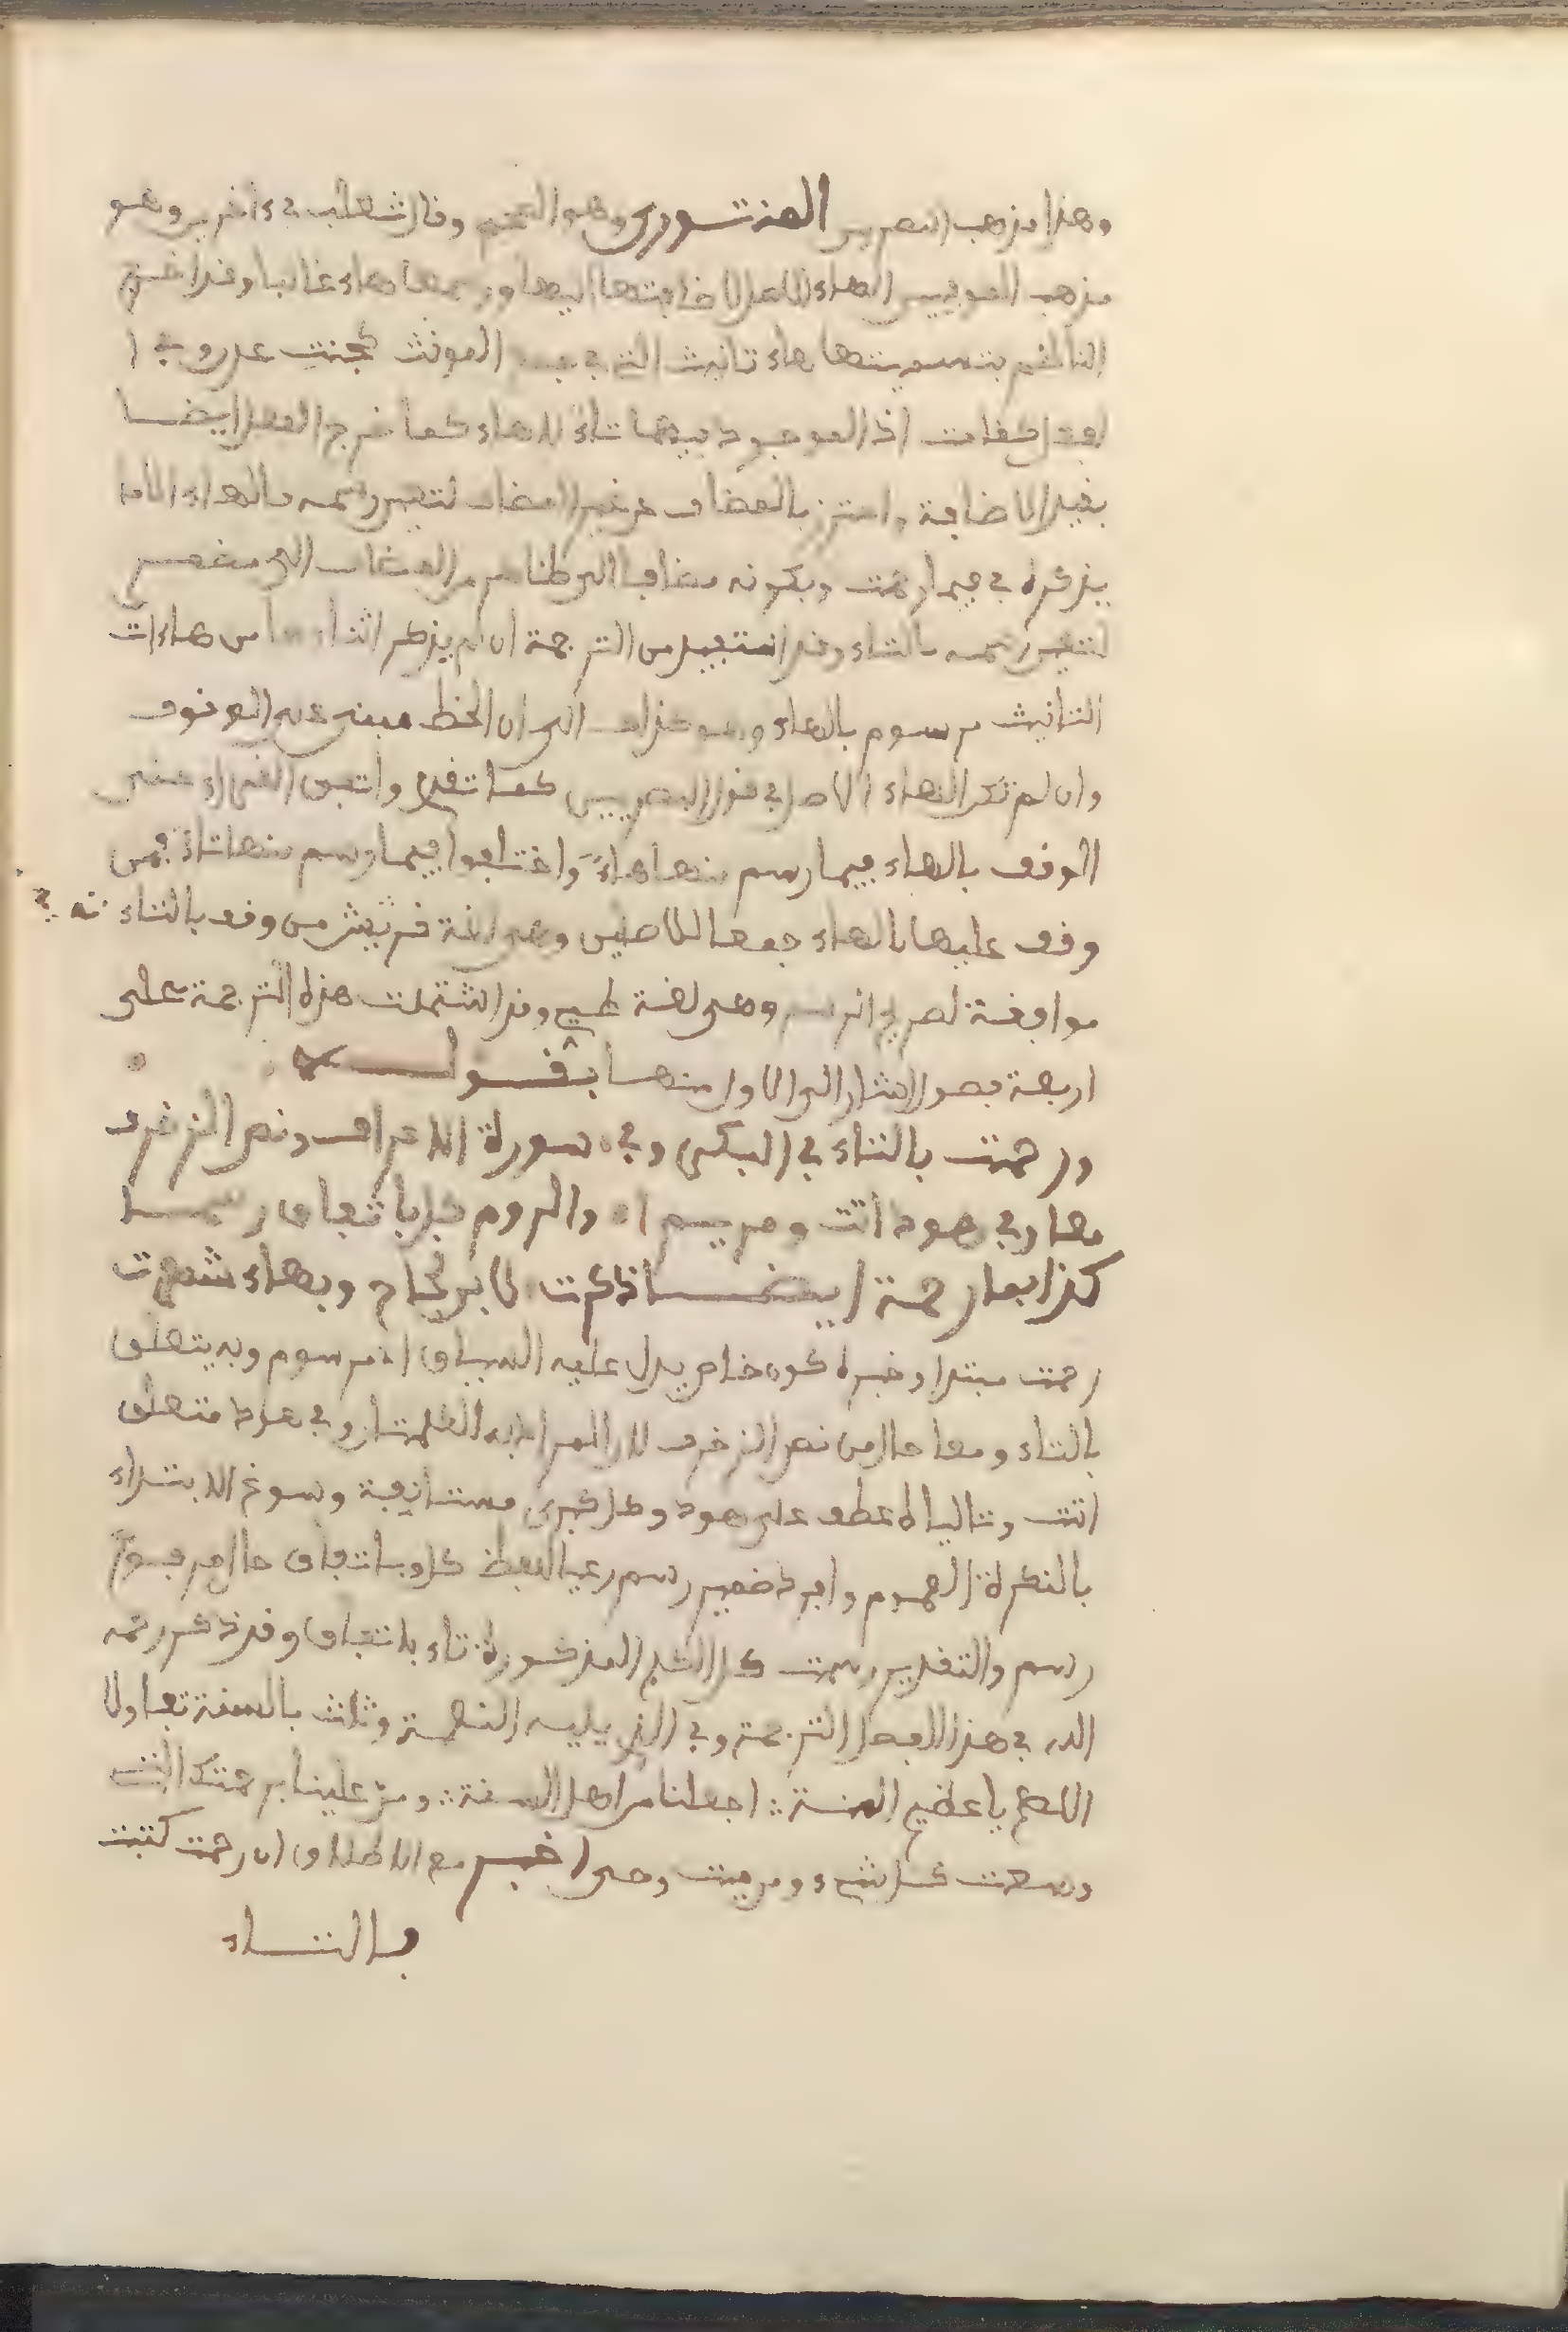 وهذا مذهب البصريين المنتوري وهو الصحيح وقال ثعلب في ءاخرين وهو
مذهب الكوفيين الهاء الاصل لاضافتها اليها ورسمها هاء غالبا وقد اخرج
الناظم بتسميتها هاء تانيث التي في جمع المونث كجنت عدن وفي
الفعل كقامت اذ الموجود فيها تاء لا هاء كما خرج الفعل ايضا
بقيد الاضافة واحترز بالمضاف عن غير المضاف لتعين رسمه بالهاء الا ما
يذكره في فيما رحمت وبكونه مضافا الى ظاهر من المضاف الى مضمر
لتعين رسمه بالتاء وقد استفيد من الترجمة ان لم يذكر اثناءها من هاءات
التانيث مرسوم بالهاء وهو كذلك الى ان الخط مبني على الوقوف
وان لم تكن الهاء الاصل في قول البصريين كما تقدم واتفق القراء على
الوقف بالهاء فيما رسم منها هاء واختلفوا فيما رسم منها تاء فمن
وقف عليها بالهاء جمعا للاصلين وهي لغة قريش ومن وقف بالتاء فـ
موافقة لصريح الرسم وهي لغة طيء وقد اشتملت هذه الترجمة على
اربعة فصول اشار الى الاول منها بقولـــه
ورحمت بالتاء في البكر وفي سورة الاعراف ونص الزخرف
معا وفي هود اتت ومريما والروم كل باتفاق رسما
كذا بما رحمة ايضا ذكرت لابن نجاح وبهاء شهرت
رحمت مبتدا وخبره كون خاص يدل عليه السياق اي مرسوم وبه يتعلق
بالتاء ومعا حال من نص الزخرف لان المراد به الكلمتان وفي هود متعلق
اتت وتالياه عطف على هود وكل كبرى مستانفة وسوغ الابتداء
بالنكرة العموم وافرد ضمير رسم رعيا للفظ كل وباتفاق حال مرفوع
رسم والتقدير رسمت كل الكلم المذكورة تاء باتفاق وقد ذكر رحمه
الله في هذا الفصل الترجمة وفي الذي يليه النعمة وثلث بالسنة تفاولا
اللهم يا عظيم المنة اجعلنا من اهل السنة ومن علينا برحمتك التي
وسعت كل شيء ومربيت وحي اخبر مع الاطلاق ان رحمت كتبت
بالتــاء